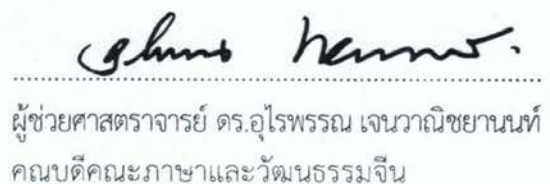 ผู้ช่วยศาสตราจารย์ ดร.อุไรพรรณ เจนวาณิชยานนท์
คณบดีคณะภาษาและวัฒนธรรมจีน